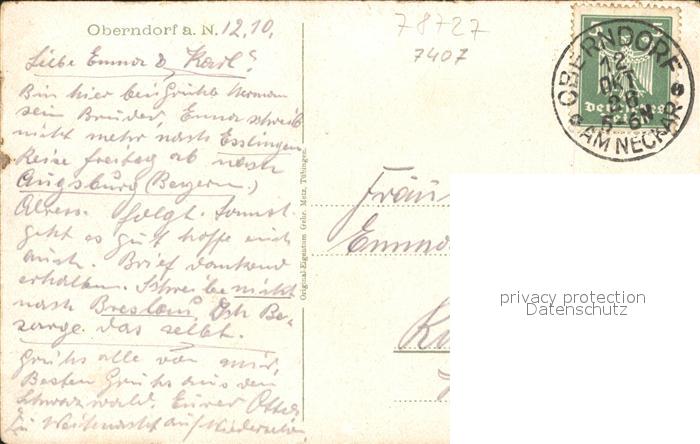 Oberndorf a. N. 12.10.
78+27
7407
Liebe Emma & Karl!
Bin hier bei Hermann
sein Bruder, Emma schreib
nicht mehr nach Esslingen
Reise freitag ab nach
Augsburg (Bayern.)
Adress. folgt. sonst
geht es gut hoffe euch
auch. Brief dankend
erhalten. Schreibe nicht
nach Breslau. Ich Be-
sorge das selbt.
Grüße alle von mir.
Besten Gruß aus den
Schwarzwald. Eurer Otto.
Zu Weihnacht auf Wiedersehen
Original-Eigentum Gebr. Metz, Tübingen.
OBERNDORF
12
OKT
26
5-6N
AM NECKAR
Deutsches
Fräu
Emma
privacy protection
Datenschutz